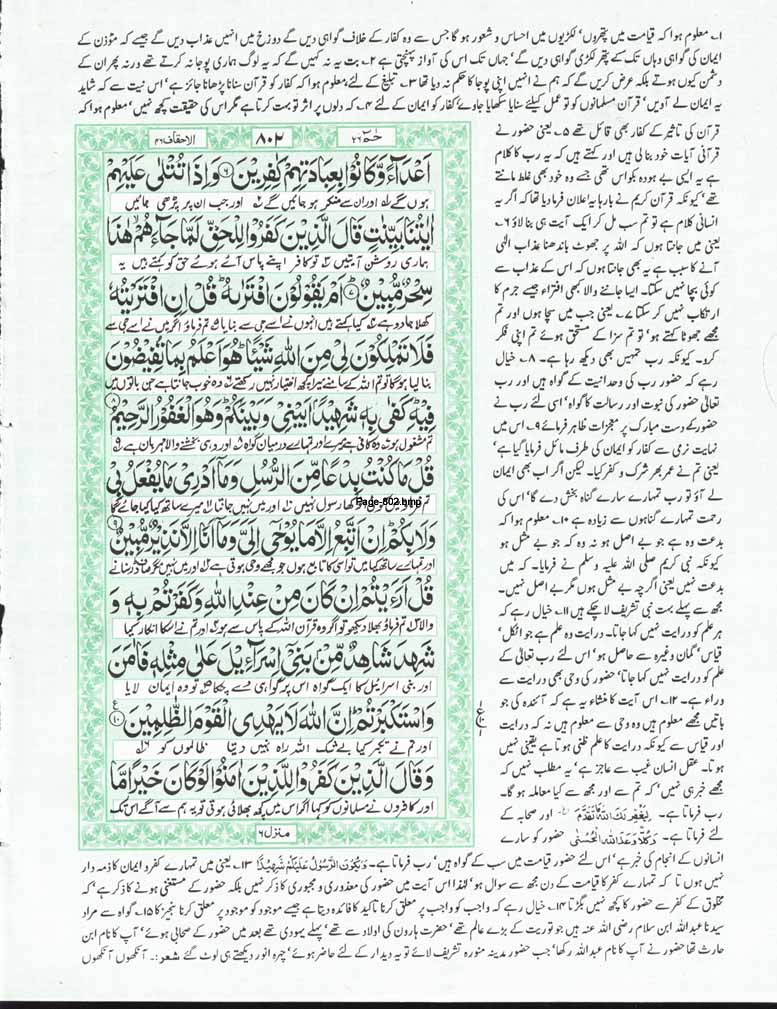 ۱۔ معلوم ہوا کہ قیامت میں پتھروں' لکڑیوں میں احساس و شعور ہو گا جس سے وہ کفار کے خلاف گواہی دیں گے دوزخ میں انہیں عذاب دیں گے جیسے کہ مؤذن کے
ایمان کی گواہی وہاں تک کے پتھر لکڑی گواہی دیں گے' جہاں تک اس کی آواز پہنچتی ہے ۲۔ بت یہ نہ کہیں گے کہ یہ لوگ ہماری پوجا نہ کرتے تھے ورنہ پھر ان کے
دشمن کیوں ہوتے بلکہ عرض کریں گے کہ ہم نے انہیں اپنی پوجا کا حکم نہ دیا تھا ۳۔ تبلیغ کے لئے معلوم ہوا کہ کفار کو قرآن سنانا پڑھانا جائز ہے' اس نیت سے کہ شاید
یہ ایمان لے آویں' قرآن مسلمانوں کو تو عمل کیلئے سنایا سکھایا جاوے کفار کو ایمان کے لئے ۴۔ کہ دلوں پر اثر تو بہت کرتا ہے مگر اس کی حقیقت کچھ نہیں' معلوم ہوا کہ
قرآن کی تاثیر کے کفار بھی قائل تھے ۵۔ یعنی حضور نے
قرآنی آیات خود بنالی ہیں اور کہتے ہیں کہ یہ رب کا کلام
ہے یہ ایسی بے ہودہ بکواس تھی جس وہ خود بھی غلط مانتے
تھے' کیونکہ قرآن کریم نے بارہا یہ اعلان فرما دیا تھا کہ اگر یہ
انسانی کلام ہے تو تم سب مل کر ایک آیت ہی بنا لاؤ ۶۔
یعنی میں جانتا ہوں کہ اللہ پر جھوٹ باندھنا عذاب الٰہی
آنے کا سبب ہے یہ بھی جانتا ہوں کہ اس کے عذاب سے
کوئی بچا نہیں سکتا۔ ایسا جاننے والا کبھی افتراء جیسے جرم کا
ارتکاب نہیں کر سکتا ۷۔ یعنی جب میں سچا ہوں اور تم
مجھے جھوٹا کہتے ہو' تو تم سزا کے مستحق ہوئے تم اپنی فکر
کرو۔ کیونکہ رب تمہیں بھی دیکھ رہا ہے۔ ۸۔ خیال
رہے کہ حضور رب کی وحدانیت کے گواہ ہیں اور رب
تعالیٰ حضور کی نبوت اور رسالت کا گواہ' اسی لئے رب نے
حضور کے دست مبارک پر معجزات ظاہر فرمائے ۹۔ اس میں
نہایت نرمی سے کفار کو ایمان کی طرف مائل فرمایا گیا ہے'
یعنی تم نے عمر بھر شرک و کفر کیا۔ لیکن اگر اب بھی ایمان
لے آؤ تو رب تمہارے سارے گناہ بخش دے گا' اس کی
رحمت تمہارے گناہوں سے زیادہ ہے ۱۰۔ معلوم ہوا کہ
بدعت وہ ہے جو بے اصل ہو نہ وہ کہ جو بے مثل ہو
کیونکہ نبی کریم صلی اللہ علیہ وسلم نے فرمایا۔ کہ میں
بدعت نہیں یعنی اگرچہ بے مثل ہوں مگر بے اصل نہیں۔
مجھ سے پہلے بہت نبی تشریف لا چکے ہیں ۱۱۔ خیال رہے کہ
ہر علم کو درایت نہیں کہا جاتا۔ درایت وہ علم ہے جو اٹکل'
قیاس' گمان وغیرہ سے حاصل ہو' اس لئے رب تعالیٰ کے
علم کو درایت نہیں کہا جاتا' حضور کی وحی بھی درایت سے
وراء ہے۔ ۱۲۔ اس آیت کا منشاء یہ ہے کہ آئندہ کی جو
باتیں مجھے معلوم ہیں وہ وحی سے معلوم ہیں نہ کہ درایت
اور قیاس سے کیونکہ درایت کا علم ظنی ہوتا ہے یقینی نہیں
ہوتا۔ عقل انسان غیب سے عاجز ہے' یہ مطلب نہیں کہ
مجھے خبر ہی نہیں' کہ تم سے اور مجھ سے کیا معاملہ ہو گا۔
رب فرماتا ہے۔ لِیَغْفِرَ لَکَ اللّٰہُ مَا تَقَدَّمَ اور صحابہ کے
لئے فرماتا ہے۔ وَکُلًّا وَّعَدَ اللّٰہُ الْحُسْنٰی حضور کو سارے
حٰمٓ ۲۶
۸۰۲
الاحقاف ۴۶
اَعْدَآءً وَّكَانُوْا بِعِبَادَتِهِمْ كٰفِرِيْنَ ۶ وَاِذَا تُتْلٰى عَلَيْهِمْ
ہوں گے اور ان سے منکر ہو جائیں گے اور جب ان پر پڑھی جائیں
اٰيٰتُنَا بَيِّنٰتٍ قَالَ الَّذِيْنَ كَفَرُوْا لِلْحَقِّ لَمَّا جَآءَهُمْ هٰذَا
ہماری روشن آیتیں تو کافر اپنے پاس آئے ہوئے حق کو کہتے ہیں یہ
سِحْرٌ مُّبِيْنٌ ۷ اَمْ يَقُوْلُوْنَ افْتَرٰىهُ قُلْ اِنِ افْتَرَيْتُهٗ
کھلا جادو ہے کیا کہتے ہیں انہوں نے اسے جی سے بنایا تم فرماؤ اگر میں نے اسے جی سے
فَلَا تَمْلِكُوْنَ لِيْ مِنَ اللّٰهِ شَيْـًٔا هُوَ اَعْلَمُ بِمَا تُفِيْضُوْنَ
بنا لیا ہوگا تو تم اللہ کے سامنے میرا کچھ اختیار نہیں رکھتے وہ خوب جانتا ہے جن باتوں میں
فِيْهِ كَفٰى بِهٖ شَهِيْدًۢا بَيْنِيْ وَبَيْنَكُمْ وَهُوَ الْغَفُوْرُ الرَّحِيْمُ ۸
تم مشغول ہو وہ کافی ہے میرے اور تمہارے درمیان گواہ اور وہی بخشنے والا مہربان ہے
قُلْ مَا كُنْتُ بِدْعًا مِّنَ الرُّسُلِ وَمَآ اَدْرِيْ مَا يُفْعَلُ بِيْ
تم رسول نہیں اور میں نہیں جانتا میرے ساتھ کیا کیا جائے گا
Page-802.bmp
وَلَا بِكُمْ اِنْ اَتَّبِعُ اِلَّا مَا يُوْحٰٓى اِلَيَّ وَمَآ اَنَا اِلَّا نَذِيْرٌ مُّبِيْنٌ ۹
اور تمہارے ساتھ کیا میں تو اسی کا تابع ہوں جو مجھے وحی ہوتی ہے اور میں نہیں مگر صاف ڈر سنانے
قُلْ اَرَءَيْتُمْ اِنْ كَانَ مِنْ عِنْدِ اللّٰهِ وَكَفَرْتُمْ بِهٖ وَ
والا تم فرماؤ بھلا دیکھو تو اگر وہ قرآن اللہ کے پاس سے ہو اور تم نے اس کا انکار کیا
شَهِدَ شَاهِدٌ مِّنْۢ بَنِيْٓ اِسْرَآءِيْلَ عَلٰى مِثْلِهٖ فَاٰمَنَ
اور بنی اسرائیل کا ایک گواہ اس پر گواہی دے چکا تو وہ ایمان لایا
وَاسْتَكْبَرْتُمْ اِنَّ اللّٰهَ لَا يَهْدِي الْقَوْمَ الظّٰلِمِيْنَ ۱۰
اور تم نے تکبر کیا بے شک اللہ راہ نہیں دیتا ظالموں کو
وَقَالَ الَّذِيْنَ كَفَرُوْا لِلَّذِيْنَ اٰمَنُوْا لَوْ كَانَ خَيْرًا مَّا
اور کافروں نے مسلمانوں کو کہا اگر اس میں کچھ بھلائی ہوتی تو یہ ہم سے آگے اس تک
منزل ۶
انسانوں کے انجام کی خبر ہے' اس لئے حضور قیامت میں سب کے گواہ ہیں' رب فرماتا ہے۔ وَیَکُوْنَ الرَّسُوْلُ عَلَیْکُمْ شَہِیْدًا ۱۳۔ یعنی میں تمہارے کفر و ایمان کا ذمہ دار
نہیں ہوں تا کہ تمہارے کفر کا قیامت کے دن مجھ سے سوال ہو' لہٰذا اس آیت میں حضور کی معذوری و مجبوری کا ذکر نہیں بلکہ حضور کے مستغنی ہونے کا ذکر ہے' کہ
مخلوق کے کفر سے حضور کا کچھ نہیں بگڑتا ۱۴۔ خیال رہے کہ واجب کو واجب پر معلق کرنا تاکید کا فائدہ دیتا ہے جیسے موجود کو موجود پر معلق کرنا ۱۵۔ گواہ سے مراد
سیدنا عبداللہ ابن سلام رضی اللہ عنہ ہیں جو توریت کے بڑے عالم تھے' حضرت ہارون کی اولاد سے تھے' پہلے یہودی تھے بعد میں حضور کے صحابی ہوئے' آپ کا نام ابن
حارث تھا حضور نے آپ کا نام عبداللہ رکھا' جب حضور مدینہ منورہ تشریف لائے تو یہ دیدار کے لئے حاضر ہوئے' چہرہ انور دیکھتے ہی لوٹ گئے شعر:۔ آنکھوں آنکھوں